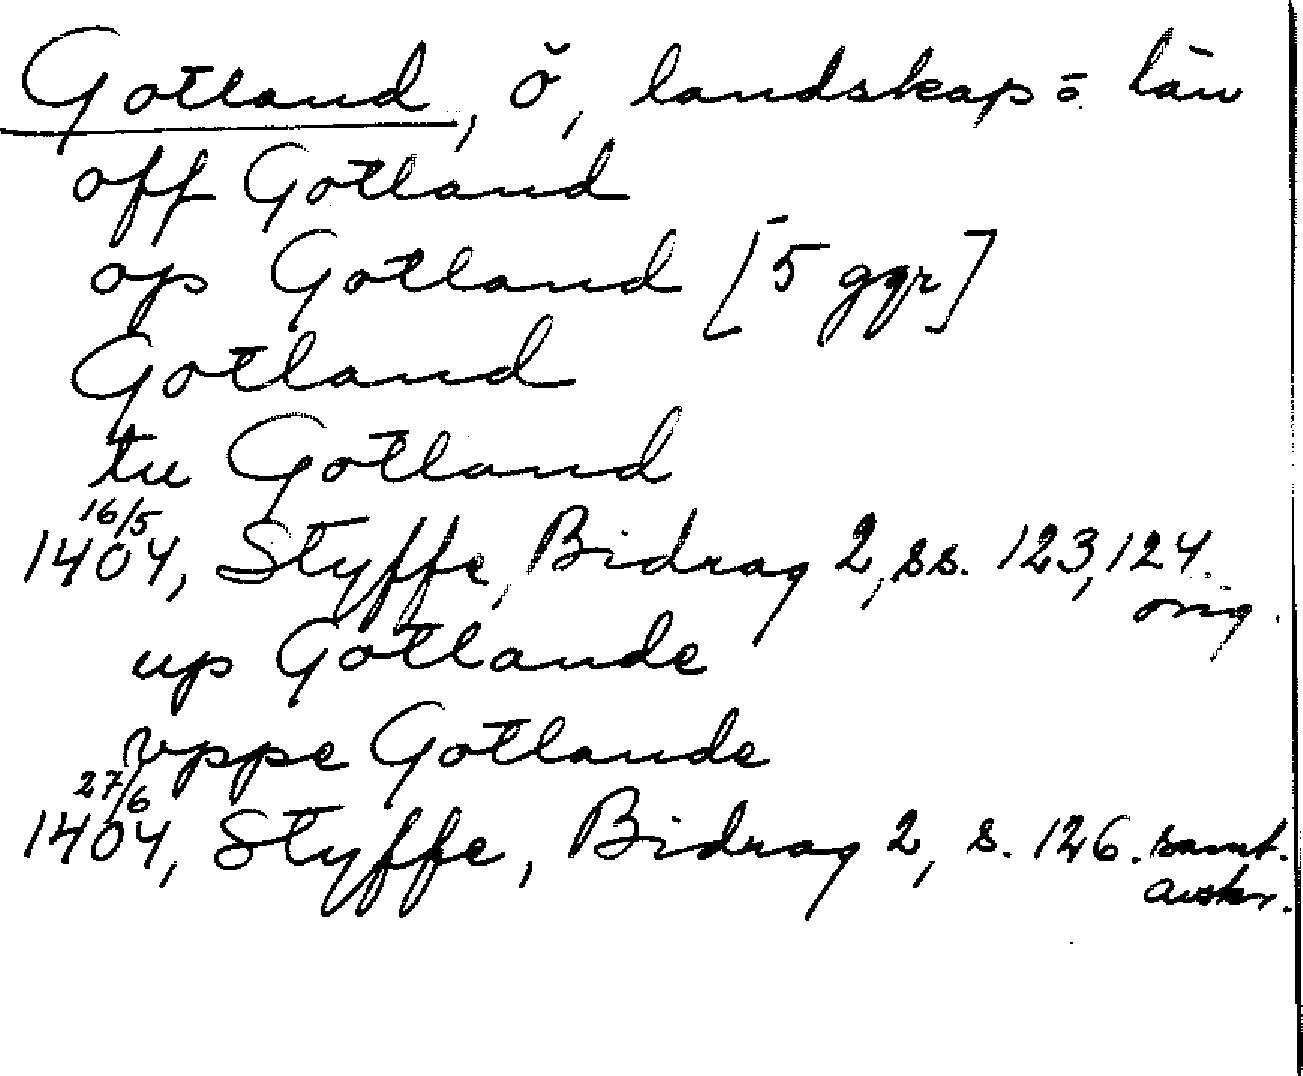 Gotland, ö, landskap o. län
off Gotland
op Gotland [5 ggr]
Gotland
tu Gotland
16/5
1404, Styffe, Bidrag 2, ss. 123, 124.
orig.
up Gotlande
vppe Gotlande
27/6
1404, Styffe, Bidrag 2, s. 126. samt.
avskr.